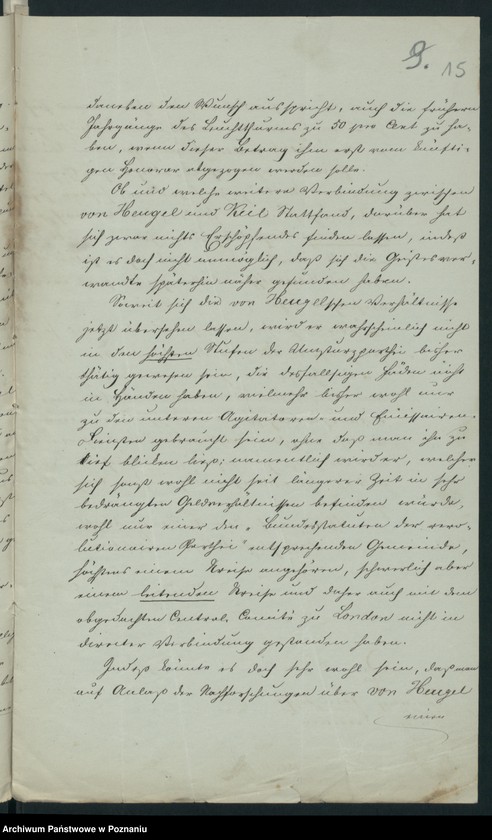 9. 15
daneben den Wunsch ausspricht, auch die frühern
Jahrgänge des Leuchtthurms zu 50 per Cent zu ha-
ben, wenn dieser Betrag ihm erst vom künfti-
gen Honorar abgezogen werden solle.
Ob und welche weitere Verbindung zwischen
von Hengel und Keil Stattfand, darüber hat
sich zwar nichts Erschöpfendes finden lassen, indeß
ist es doch nicht unmöglich, daß sich die Geistesver-
wandte späterhin näher gefunden haben.
Soweit sich die von Hengelschen Verhältnisse
jetzt übersehen lassen, wird er wahrscheinlich nicht
in den höchsten Stufen der Umsturzparthei bisher
thätig gewesen sein, die desfallsigen Fäden nicht
in Händen haben, vielmehr bisher wohl nur
zu den unteren Agitatoren- und Emissairen-
Diensten gebraucht sein, ohne daß man ihn zu
tief blicken ließ; namentlich wird er, welcher
sich sonst wohl nicht seit längerer Zeit in sehr
bedrängten Geldverhältnissen befinden würde,
wohl nur einer den "Bundesstatuten der revo-
lutionairen Parthei" entsprechenden Gemeinde,
höchstens einem Kreise angehören, schwerlich aber
einem leitenden Kreise und daher auch mit dem
abgedachten Central-Comité zu London nicht in
directer Verbindung gestanden haben.
Indeß könnte es doch sehr wohl sein, daß man
auf Anlaß der Nachforschungen über von Hengel
einen
Archiwum Państwowe w Poznaniu